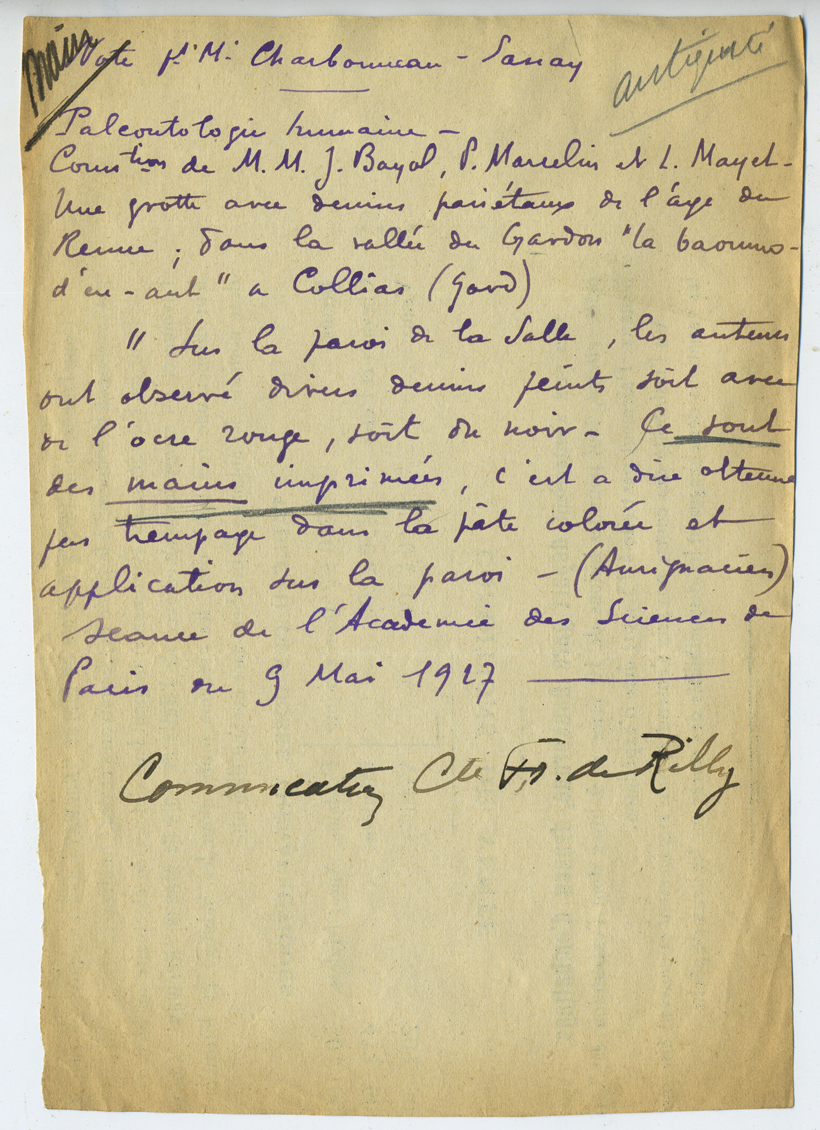 Main
antiquité
Note pr Mr Charbonneau-Lassay
Paleontologie humaine -
Comstion de M. M. J. Bayol, P. Marcelin et L. Mayet -
Une grotte avec dessins pariétaux de l'âge du
Renne ; dans la vallée du Gardon "la baoumo-
d'en-aut" a Collias (Gard)
" Sur la paroi de la Salle, les auteurs
ont observé divers dessins peints soit avec
de l'ocre rouge, soit du noir - Ce sont
des mains imprimées, c'est a dire obtenue
par trempage dans la pâte colorée et
application sur la paroi - (Aurignacien)
Seance de l'Academie des Sciences de
Paris du 9 Mai 1927
Communication Cte Fr. de Rilly